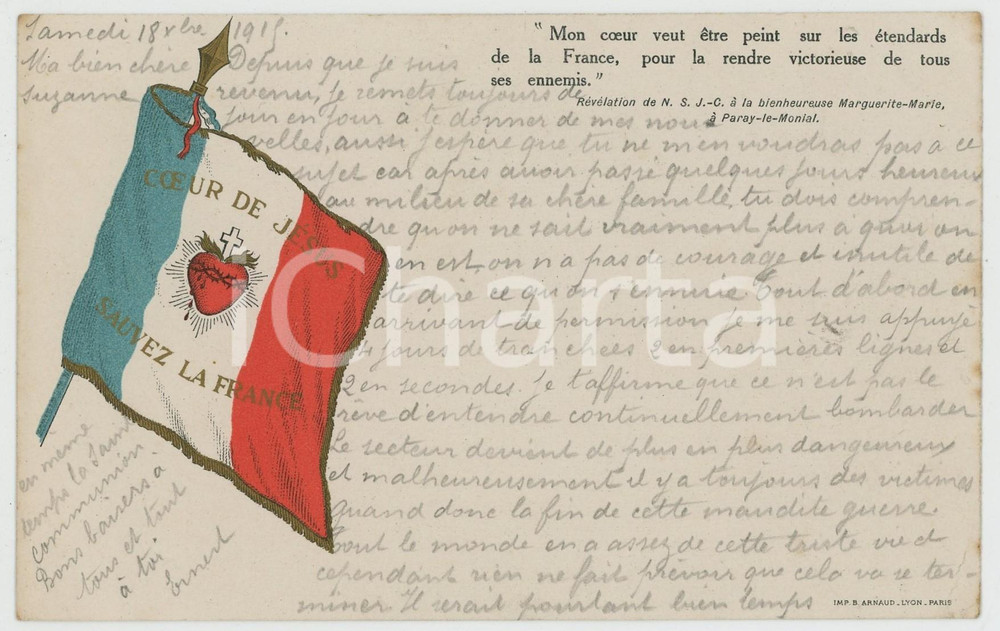 Samedi 18 xbre 1915.
Ma bien chère
Suzanne
" Mon cœur veut être peint sur les étendards
de la France, pour la rendre victorieuse de tous
ses ennemis. "
Révélation de N. S. J.-C. à la bienheureuse Marguerite-Marie,
à Paray-le-Monial.
Depuis que je suis
revenu, je remets toujours de
jour en jour à te donner de mes nou
velles, aussi j'espère que tu ne m'en voudras pas à ce
sujet car après avoir passé quelques jours heureux
au milieu de sa chère famille, tu dois compren-
dre qu'on ne sait vraiment plus à quoi on
en est, on n'a pas de courage et inutile de
te dire ce qu'on s'ennuie. Tout d'abord en
arrivant de permission je me suis appuyé
4 jours de tranchées 2 en premières lignes et
2 en secondes. Je t'affirme que ce n'est pas le
rêve d'entendre continuellement bombarder
Le secteur devient de plus en plus dangeureux
et malheureusement il y a toujours des victimes
Quand donc la fin de cette maudite guerre.
Tout le monde en a assez de cette triste vie et
cependant rien ne fait prévoir que cela va se ter-
miner Il serait pourtant bien temps
CŒUR DE JÉSUS
SAUVEZ LA FRANCE
en même
temps la Sainte
communion
Bons baisers à
tous et tout
à toi
Ernest
IMP. B. ARNAUD _ LYON _ PARIS
iCharta